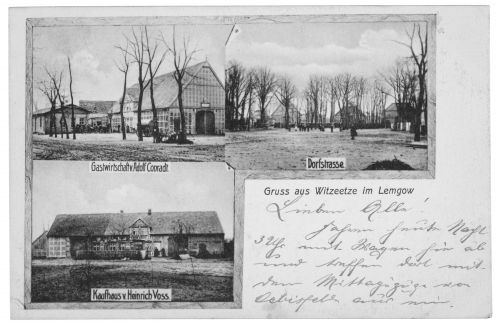 Gastwirtschaft v. Adolf Conradt.
Dorfstrasse.
Kaufhaus v. Heinrich Voss.
Gruss aus Witzeetze im Lemgow
Lieben Alle!
fahren heute Nacht
3 Uhr mit Wagen hier ab
und treffen dort mit
dem Mittagszuge von
Oebisfelde aus ein.